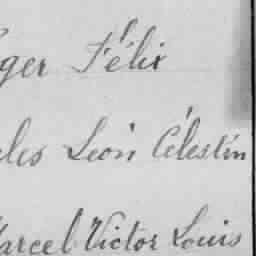 ger Félix
les Léon Célestin
arcel Victor Louis